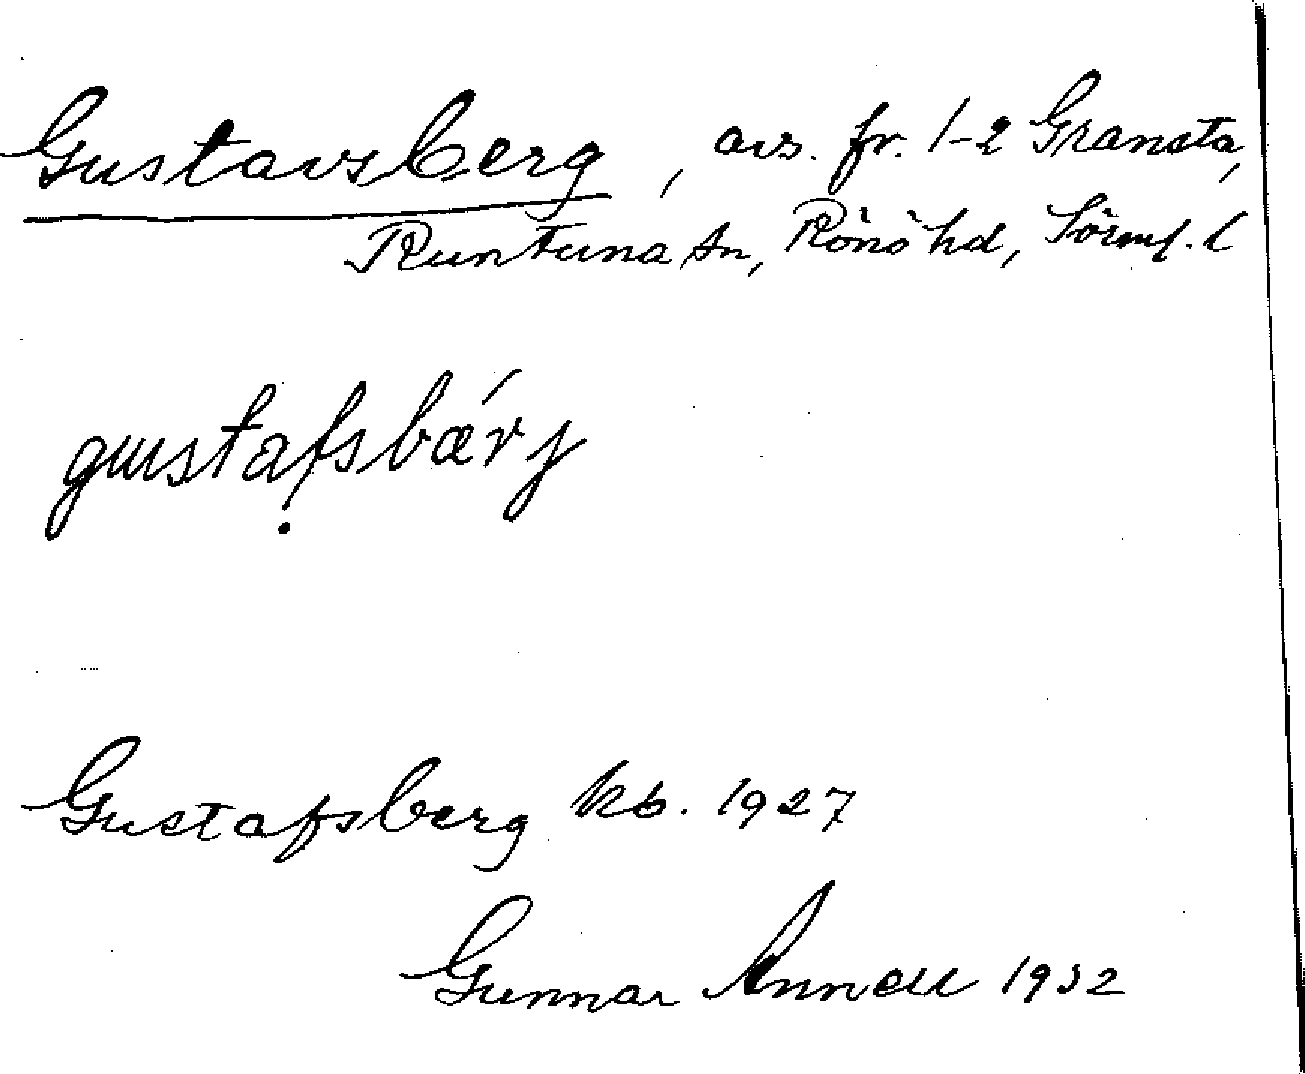 Gustavsberg, avs. fr. 1-2 Gransta,
Runtuna sn, Rönö hd, Sörml. l
gustafsbærj
Gustafsberg kb. 1927
Gunnar Annell 1932